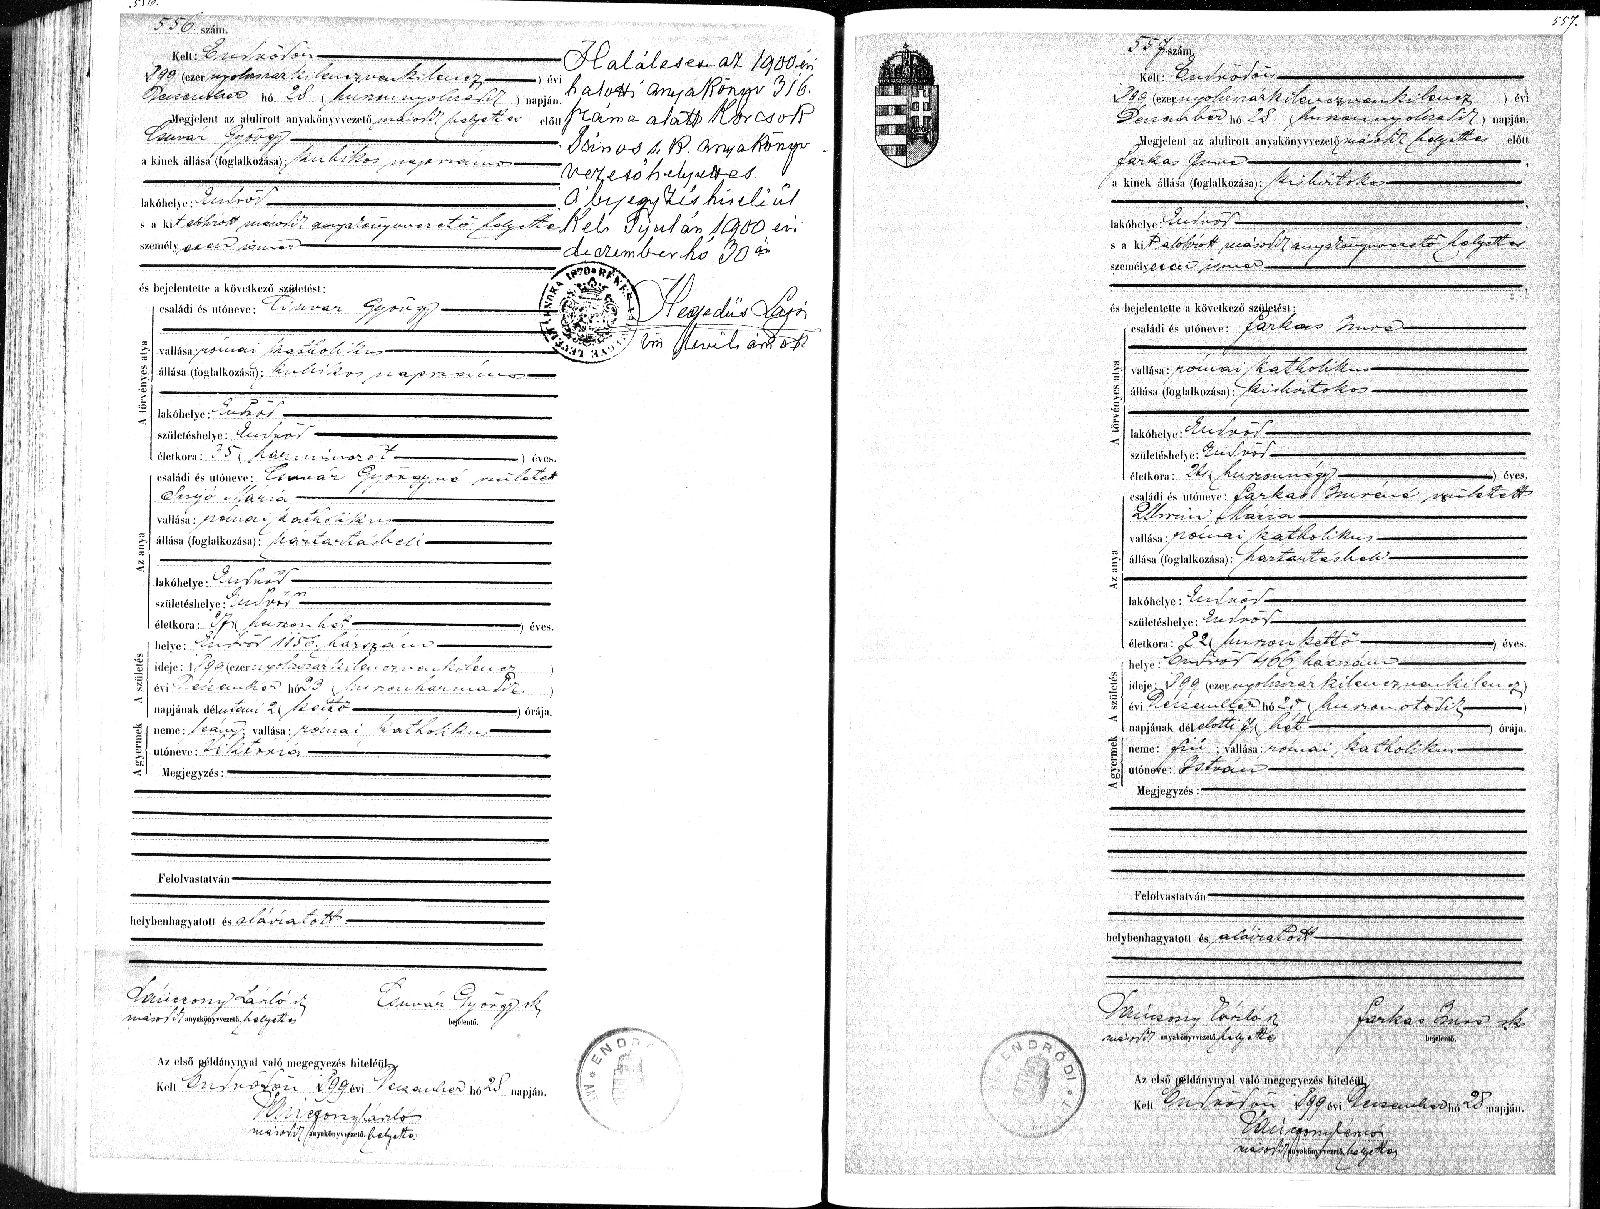 556.
556. szám.
Kelt: Endrődön
899 (ezer nyolczszázkilenczvenkilencz) évi
Deczember hó 28 (huszonnyolczadik) napján.
Megjelent az alulirott anyakönyvvezető második helyettes előtt
György
a kinek állása (foglalkozása): kubikos napszámos
lakóhelye: Endrőd
s a kit alólirott második anyakönyvvezető helyettes
személyesen ismer
és bejelentette a következő születést:
A törvényes atya
családi és utóneve: György
vallása: római katholikus
állása (foglalkozása): kubikos napszámos
lakóhelye: Endrőd
születéshelye: Endrőd
életkora: 35 (harminczöt) éves.
Az anya
családi és utóneve: Györgyné született
Mária
vallása: római katholikus
állása (foglalkozása): háztartásbeli
lakóhelye: Endrőd
születéshelye: Endrőd
életkora: 27 (huszonhét) éves.
A születés
helye: Endrőd 1156 házszám
ideje: 1899 (ezer nyolczszázkilenczvenkilencz)
évi Deczember hó 23 (huszonharmadik)
napjának délutáni 2 (kettő) órája.
A gyermek
neme: leány; vallása: római katholikus
utóneve: Viktória
Megjegyzés:
Felolvastatván
helybenhagyatott és aláiratott
László
második anyakönyvvezető helyettes
György sk
bejelentő.
Az első példánynyal való megegyezés hiteléül,
Kelt Endrődön 899 évi Deczember hó 28 napján.
László
második anyakönyvvezető helyettes
Haláleset az 1900 évi
halotti anyakönyv 316.
száma alatt Korcsok
s. k. anyakönyv
vezető helyettes
A bejegyzés hiteléül
Kelt Gyulán, 1900 évi
deczember hó 30 án
Hegedűs Lajos
ENDRŐDI
557.
557 szám.
Kelt: Endrődön
899 (ezer nyolczszázkilenczvenkilencz) évi
Deczember hó 28 (huszonnyolczadik) napján.
Megjelent az alulirott anyakönyvvezető második helyettes előtt
Farkas Imre
a kinek állása (foglalkozása): kisbirtokos
lakóhelye: Endrőd
s a kit alólirott második anyakönyvvezető helyettes
személyesen ismer
és bejelentette a következő születést:
A törvényes atya
családi és utóneve: Farkas Imre
vallása: római katholikus
állása (foglalkozása): kisbirtokos
lakóhelye: Endrőd
születéshelye: Endrőd
életkora: 24 (huszonnégy) éves.
Az anya
családi és utóneve: Farkas Imréné született
Mária
vallása: római katholikus
állása (foglalkozása): háztartásbeli
lakóhelye: Endrőd
születéshelye: Endrőd
életkora: 22 (huszonkettő) éves.
A születés
helye: Endrőd 466 házszám
ideje: 899 (ezer nyolczszázkilenczvenkilencz)
évi Deczember hó 25 (huszonötödik)
napjának délelőtti 7 (hét) órája.
A gyermek
neme: fiú; vallása: római katholikus
utóneve: István
Megjegyzés:
Felolvastatván
helybenhagyatott és aláiratott
László
második anyakönyvvezető helyettes
Farkas Imre sk
bejelentő.
Az első példánynyal való megegyezés hiteléül,
Kelt Endrődön 899 évi Deczember hó 28 napján.
második anyakönyvvezető helyettes
ENDRŐDI